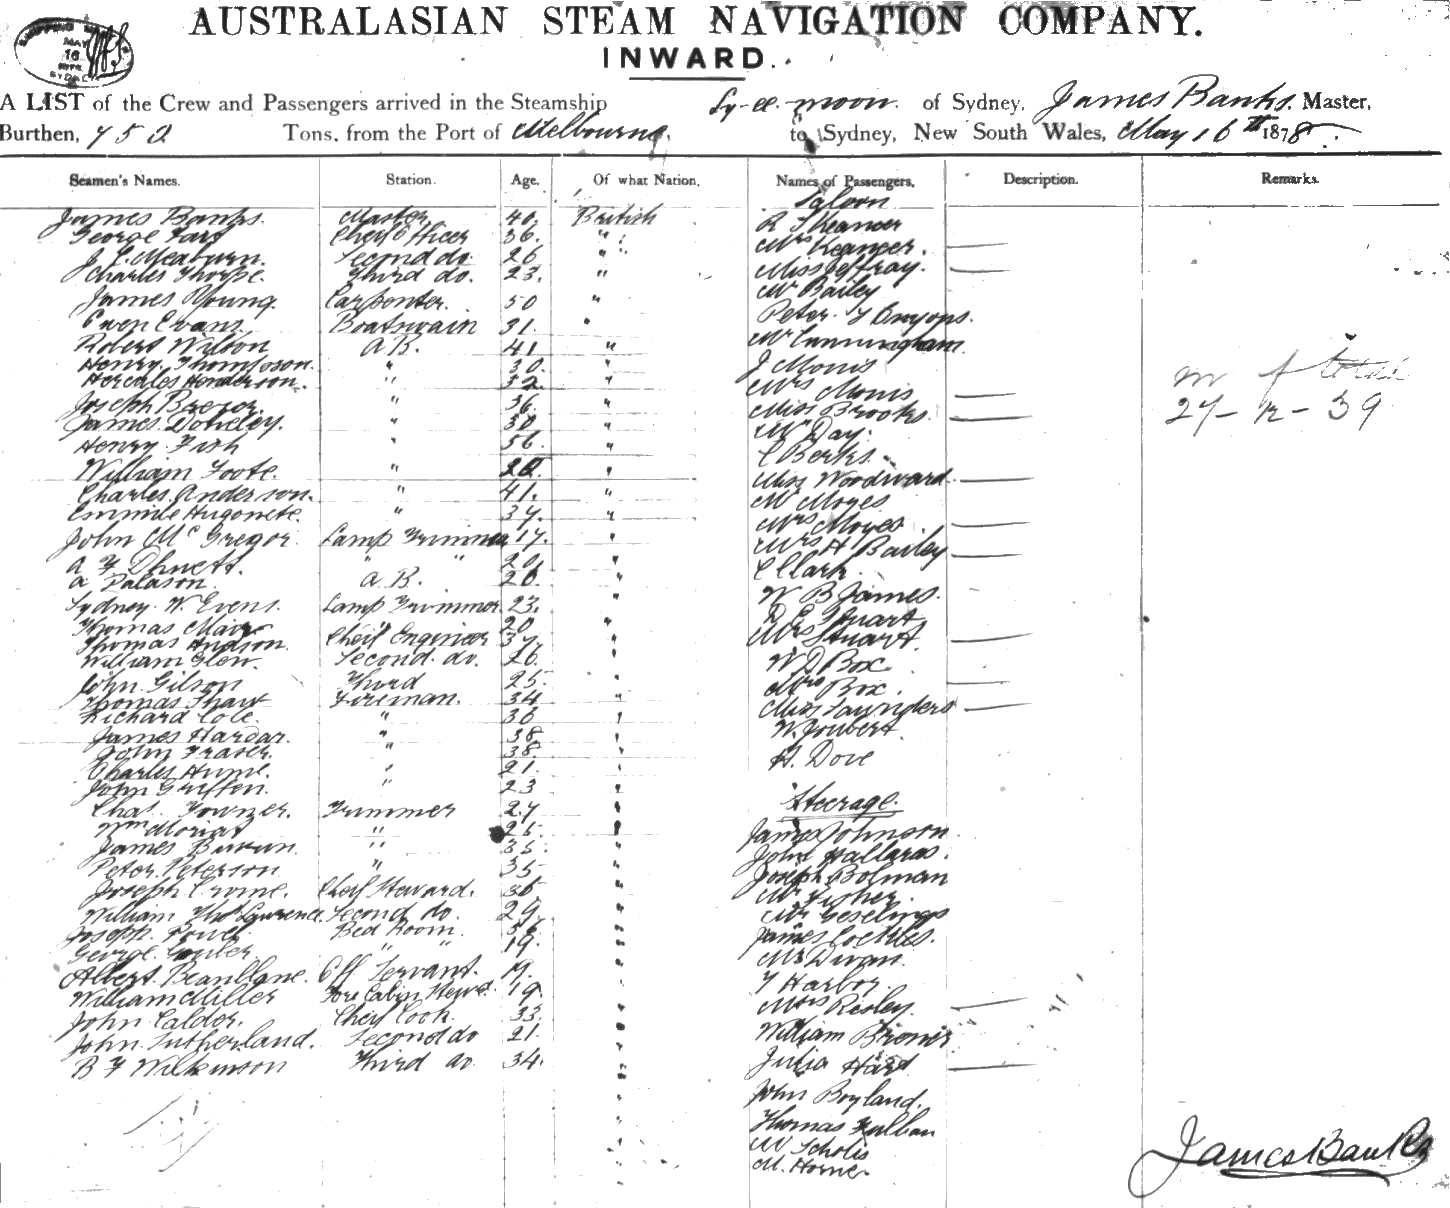 AUSTRALASIAN STEAM NAVIGATION COMPANY.
INWARD.
MAY
16
SYDNEY
A LIST of the Crew and Passengers arrived in the Steamship Ly-ee-moon. of Sydney, James Banks. Master,
Burthen, 752 Tons, from the Port of Melbourne, to Sydney, New South Wales, May 16th 1878.
Seamen's Names. Station. Age. Of what Nation. Names of Passengers. Description. Remarks.
Saloon
James Banks. Master 40. British R Skeancer
George Cheif Officer 36. " Mrs Keancer.
Second do. 26 " Miss Jeffray.
Charles Thorpe. Third do. 23. " Mr Bailey
James Young. Carpenter. 50 " Peter
Owen Evans. Boatswain 31. " Mr Cunningham
Robert Wilson A B. 41 " J Monis
Henry Thompson. " 30. " Mrs Monis
Hercules Henderson. " 32. " Miss Brooks.
Joseph " 36. " Mr Day.
James " 30 " C Berks.
Henry Fish " 56. " Miss Woodward
William Foote. " " Mr Moyes
Charles Anderson. " 41. " Mrs Moyes.
" 37. " Mrs H Bailey
John McGregor. Lamp Trimmer 17. " C Clark.
A F " " 20. " W B James.
A A B. 20. " D E Stuart
Sydney W. Evens. Lamp Trimmer 23. " Mrs Stuart.
Thomas " 20 " W D Box
Thomas Hudson. Cheif Engineer 37. " Mrs Box.
William Glew. Second do. 26. " Miss Saunders
John Gilson Third 25 " W. Joubert.
Thomas Shaw Fireman. 34 " H. Dove
Richard Cole. " 36 "
James " 38 "
John Fraser " 38. "
Charles Hume. " 21. "
John Griffen. " 23 "
Chas. Towner. Trimmer 27 " Steerage.
Wm " 26. " James Johnson
James " 35. " John Hallaras.
Peter Peterson " 35 " Joseph Bolman
Joseph Cheif Steward. 36 " Mr Fisher.
William Thos Lawrence. Second do. 29. " Mr Geselings
Joseph Powel Bed Room. " James Cockles.
George " " 19. " Mr Divan.
Albert Beanllane. Off Servant. 19. " T Harbor
William Miller Fore Cabin Stewd. 19. " Mrs Resley.
John Calder. Cheif Cook. 33 " William
John Sutherland. Second do 21. " Julia Hard
B F Wilkinson Third do. 34. " John Boyland.
Thomas
Mr Scholis
M. Horner
27-12-39
James Banks